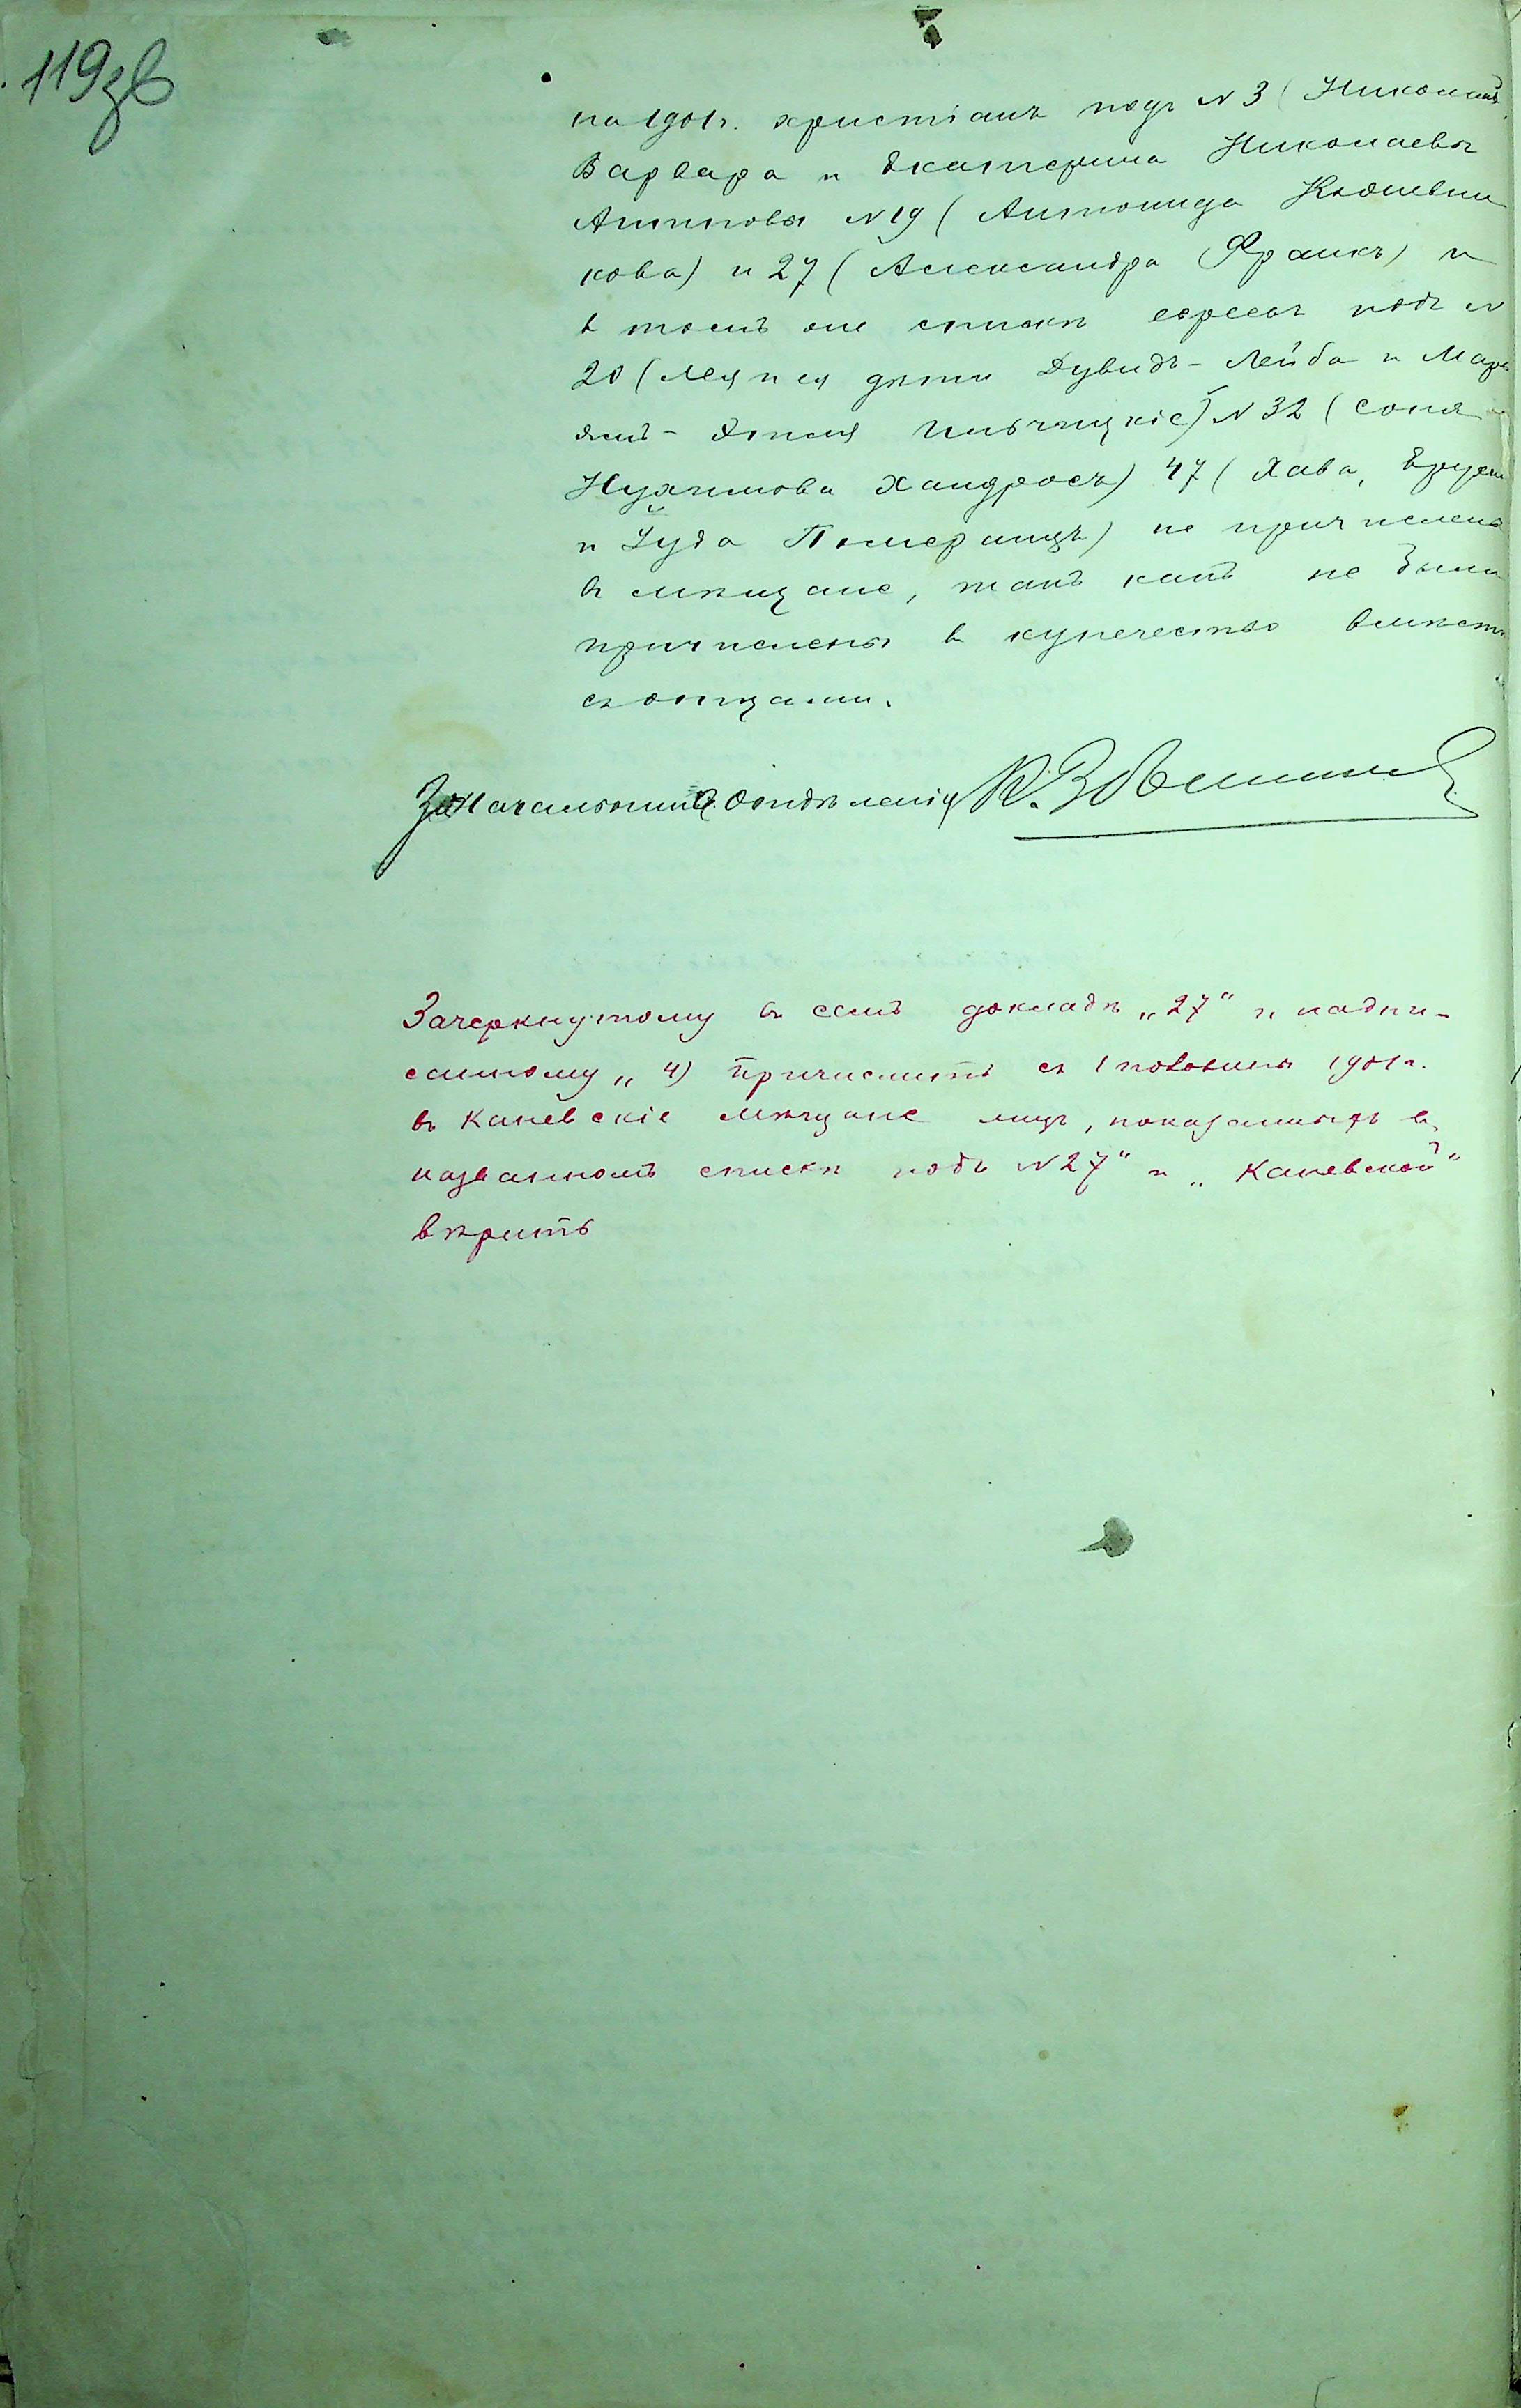 119зв
на 1901г. христіанъ подъ № 3 (Николай,
Варвара и Екатерина Николаевы
Антиповы № 19 (Антонида
кова) и 27 (Александра Франкъ) и
въ томъ же списке евреевъ подъ №
20 (Лея и ея дѣти Дувидъ-Лейба и Марь
ямъ- № 32 (Соня
Нухимова Хандросъ) 47 (Хава,
и Іуда Померанцъ) не причислены
въ мѣщане, такъ какъ не были
причислены въ купечество вмѣстѣ
съ отцами.
За Начальника Отдѣленія К.
Зачеркнутому въ семъ докладѣ „27“ и надпи-
санному „4) Причислить съ 1 половины 1901г.
въ Каневскіе мѣщане лицъ, показанныхъ въ
названномъ спискѣ подъ № 27“ и „Каневской“
вѣрить